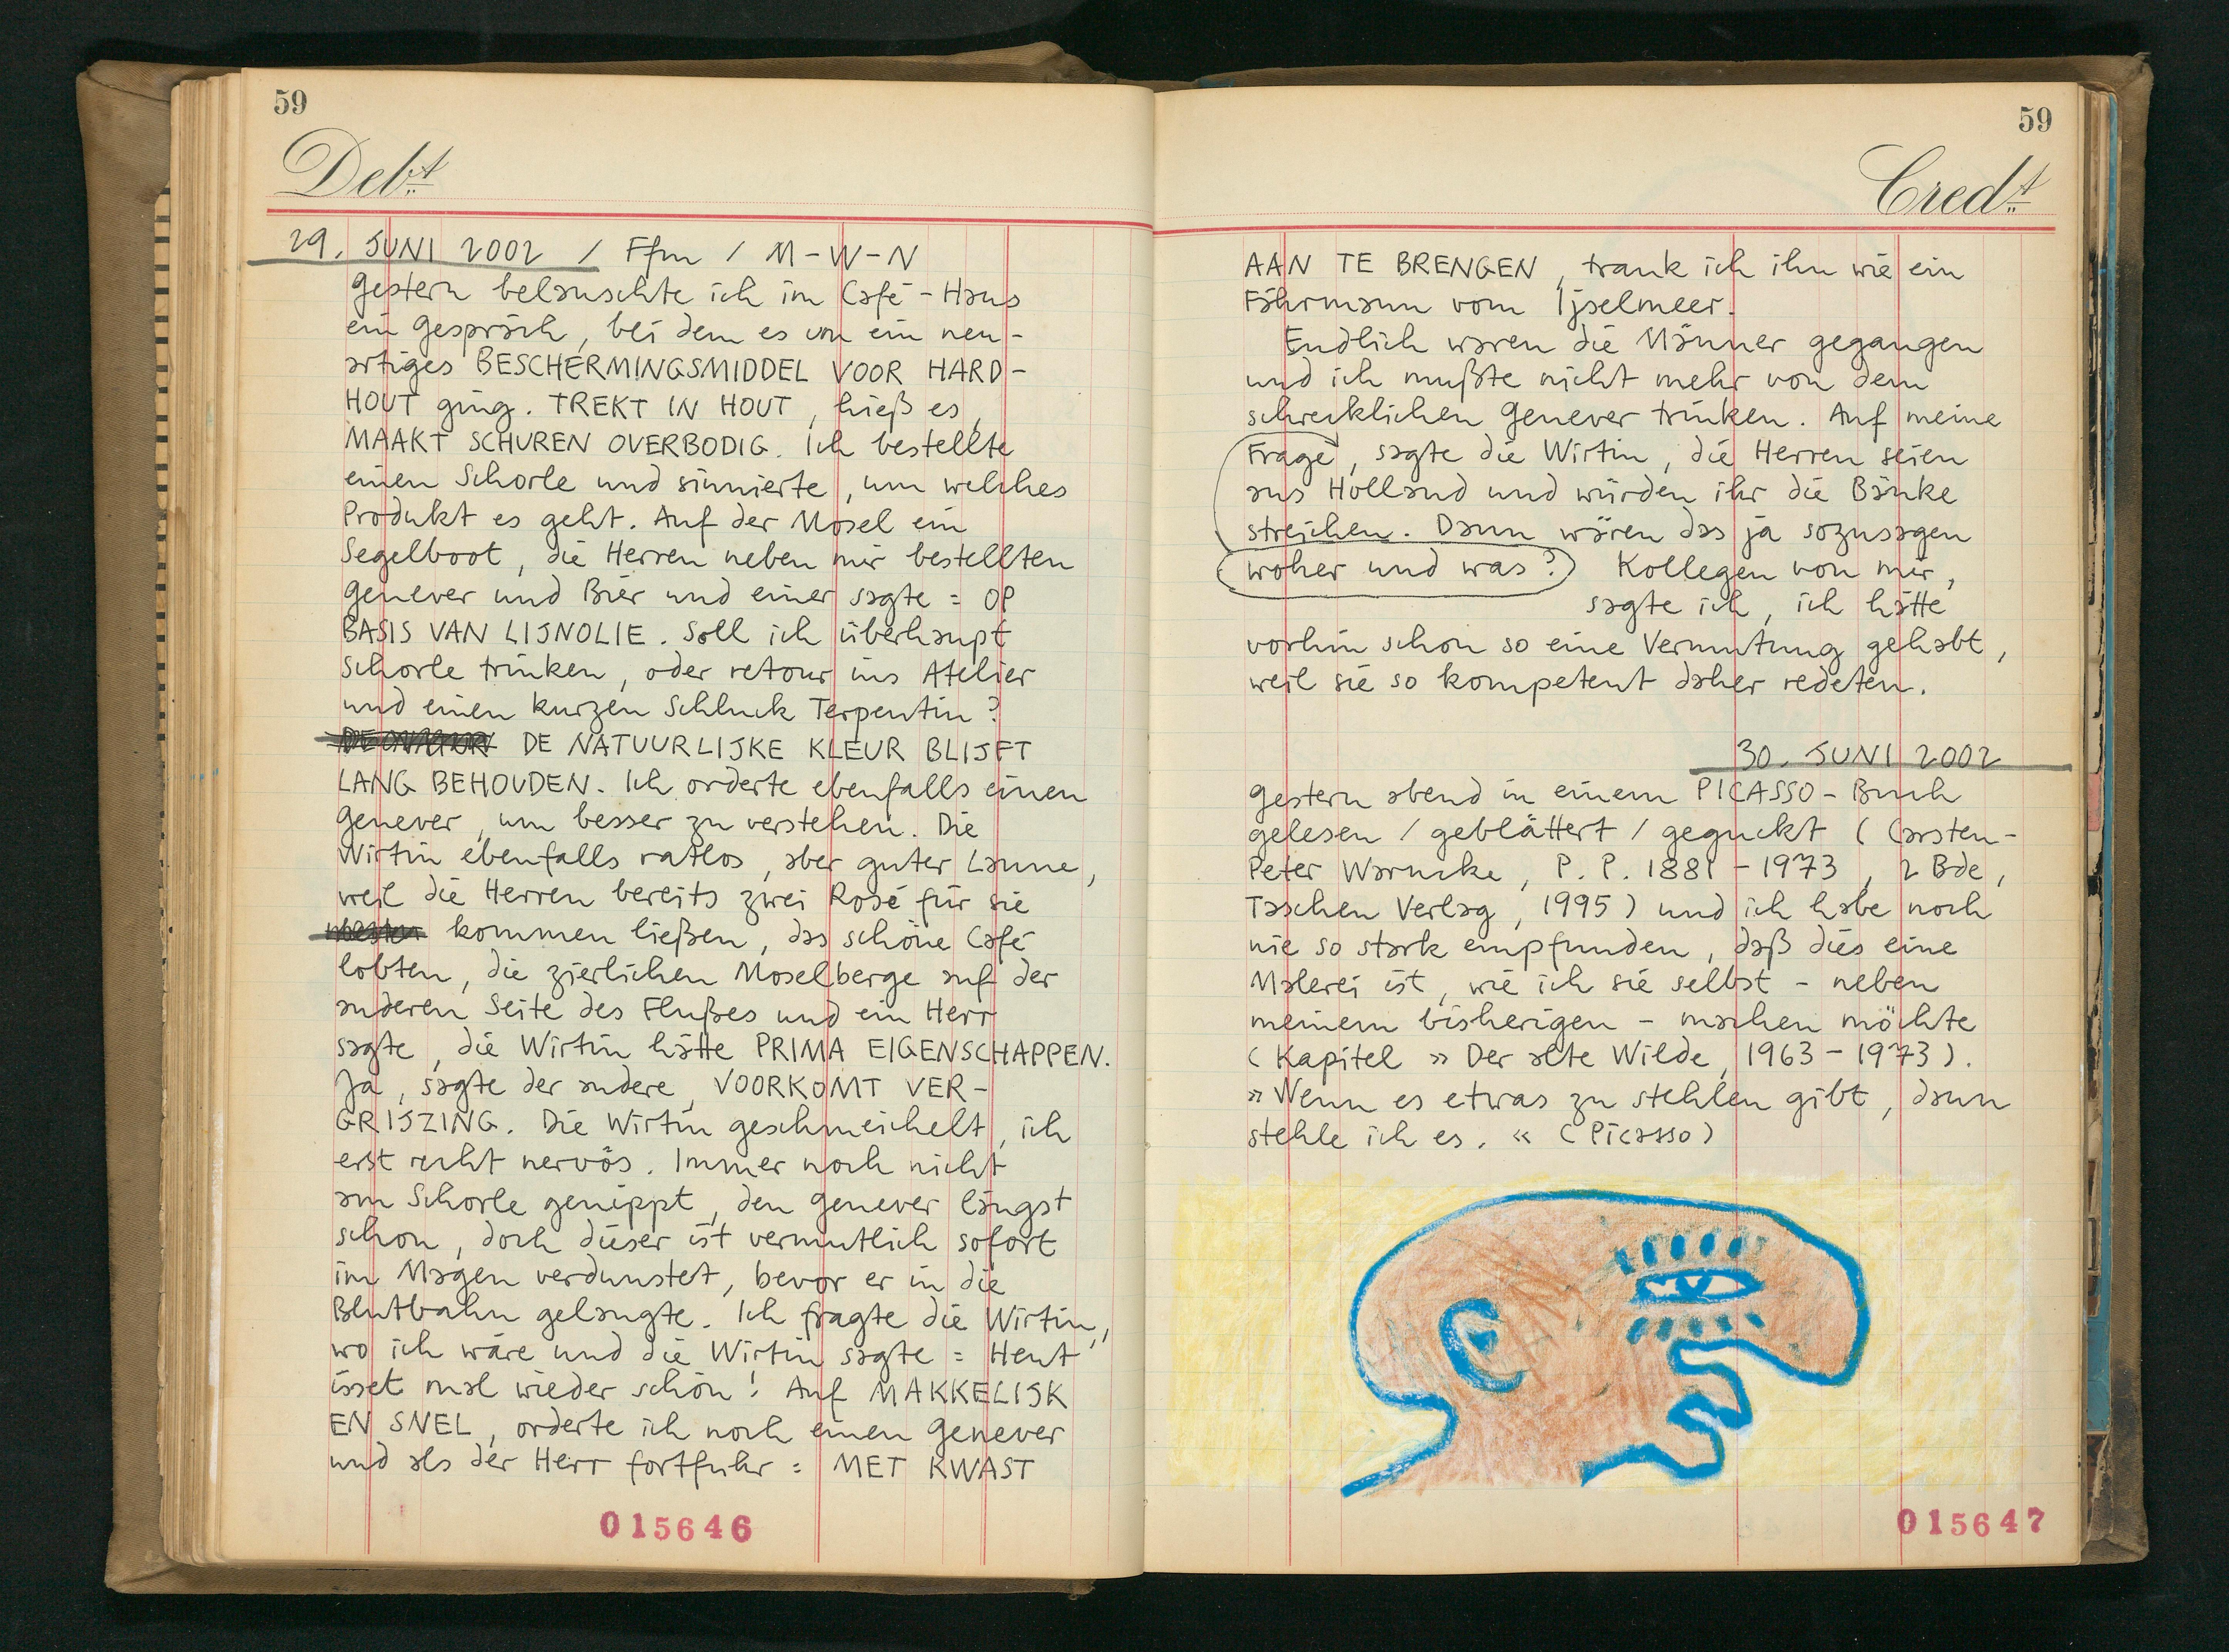 59
Debt
29. JUNI 2002 / Ffm / M-W-N
Gestern belauschte ich im Café-Haus
ein Gespräch, bei dem es um ein neu-
artiges BESCHERMINGSMIDDEL VOOR HARD-
HOUT ging. TREKT IN HOUT, hieß es,
MAAKT SCHUREN OVERBODIG. Ich bestellte
einen Schorle und sinnierte, um welches
Produkt es geht. Auf der Mosel ein
Segelboot, die Herren neben mir bestellten
Genever und Bier und einer sagte = OP
BASIS VAN LIJNOLIE. Soll ich überhaupt
Schorle trinken, oder retour ins Atelier
und einen kurzen Schluck Terpentin?
DE NATUURLIJKE KLEUR BLIJFT
LANG BEHOUDEN. Ich orderte ebenfalls einen
Genever, um besser zu verstehen. Die
Wirtin ebenfalls ratlos, aber guter Laune,
weil die Herren bereits zwei Rosé für sie
kommen ließen, das schöne Café
lobten, die zierlichen Moselberge auf der
anderen Seite des Flußes und ein Herr
sagte, die Wirtin hätte PRIMA EIGENSCHAPPEN.
Ja, sagte der andere, VOORKOMT VER-
GRIJZING. Die Wirtin geschmeichelt, ich
erst recht nervös. Immer noch nicht
am Schorle genippt, den Genever längst
schon, doch dieser ist vermutlich sofort
im Magen verdunstet, bevor er in die
Blutbahn gelangte. Ich fragte die Wirtin,
wo ich wäre und die Wirtin sagte = Heut'
isset mal wieder schön! Auf MAKKELIJK
EN SNEL, orderte ich noch einen Genever
und als der Herr fortfuhr = MET KWAST
015646
59
Credt
AAN TE BRENGEN, trank ich ihn wie ein
Fährmann vom Ijselmeer.
Endlich waren die Männer gegangen
und ich mußte nicht mehr von dem
schrecklichen Genever trinken. Auf meine
Frage, sagte die Wirtin, die Herren seien
aus Holland und würden ihr die Bänke
streichen. Dann wären das ja sozusagen
woher und was? Kollegen von mir,
sagte ich, ich hätte
vorhin schon so eine Vermutung gehabt,
weil sie so kompetent daher redeten.
30. JUNI 2002
Gestern abend in einem PICASSO-Buch
gelesen / geblättert / geguckt (Carsten-
Peter Warncke, P. P. 1881-1973, 2 Bde,
Taschen Verlag, 1995) und ich habe noch
nie so stark empfunden, daß dies eine
Malerei ist, wie ich sie selbst - neben
meinem bisherigen - machen möchte
(Kapitel » Der alte Wilde, 1963-1973).
» Wenn es etwas zu stehlen gibt, dann
stehle ich es. « (Picasso)
015647